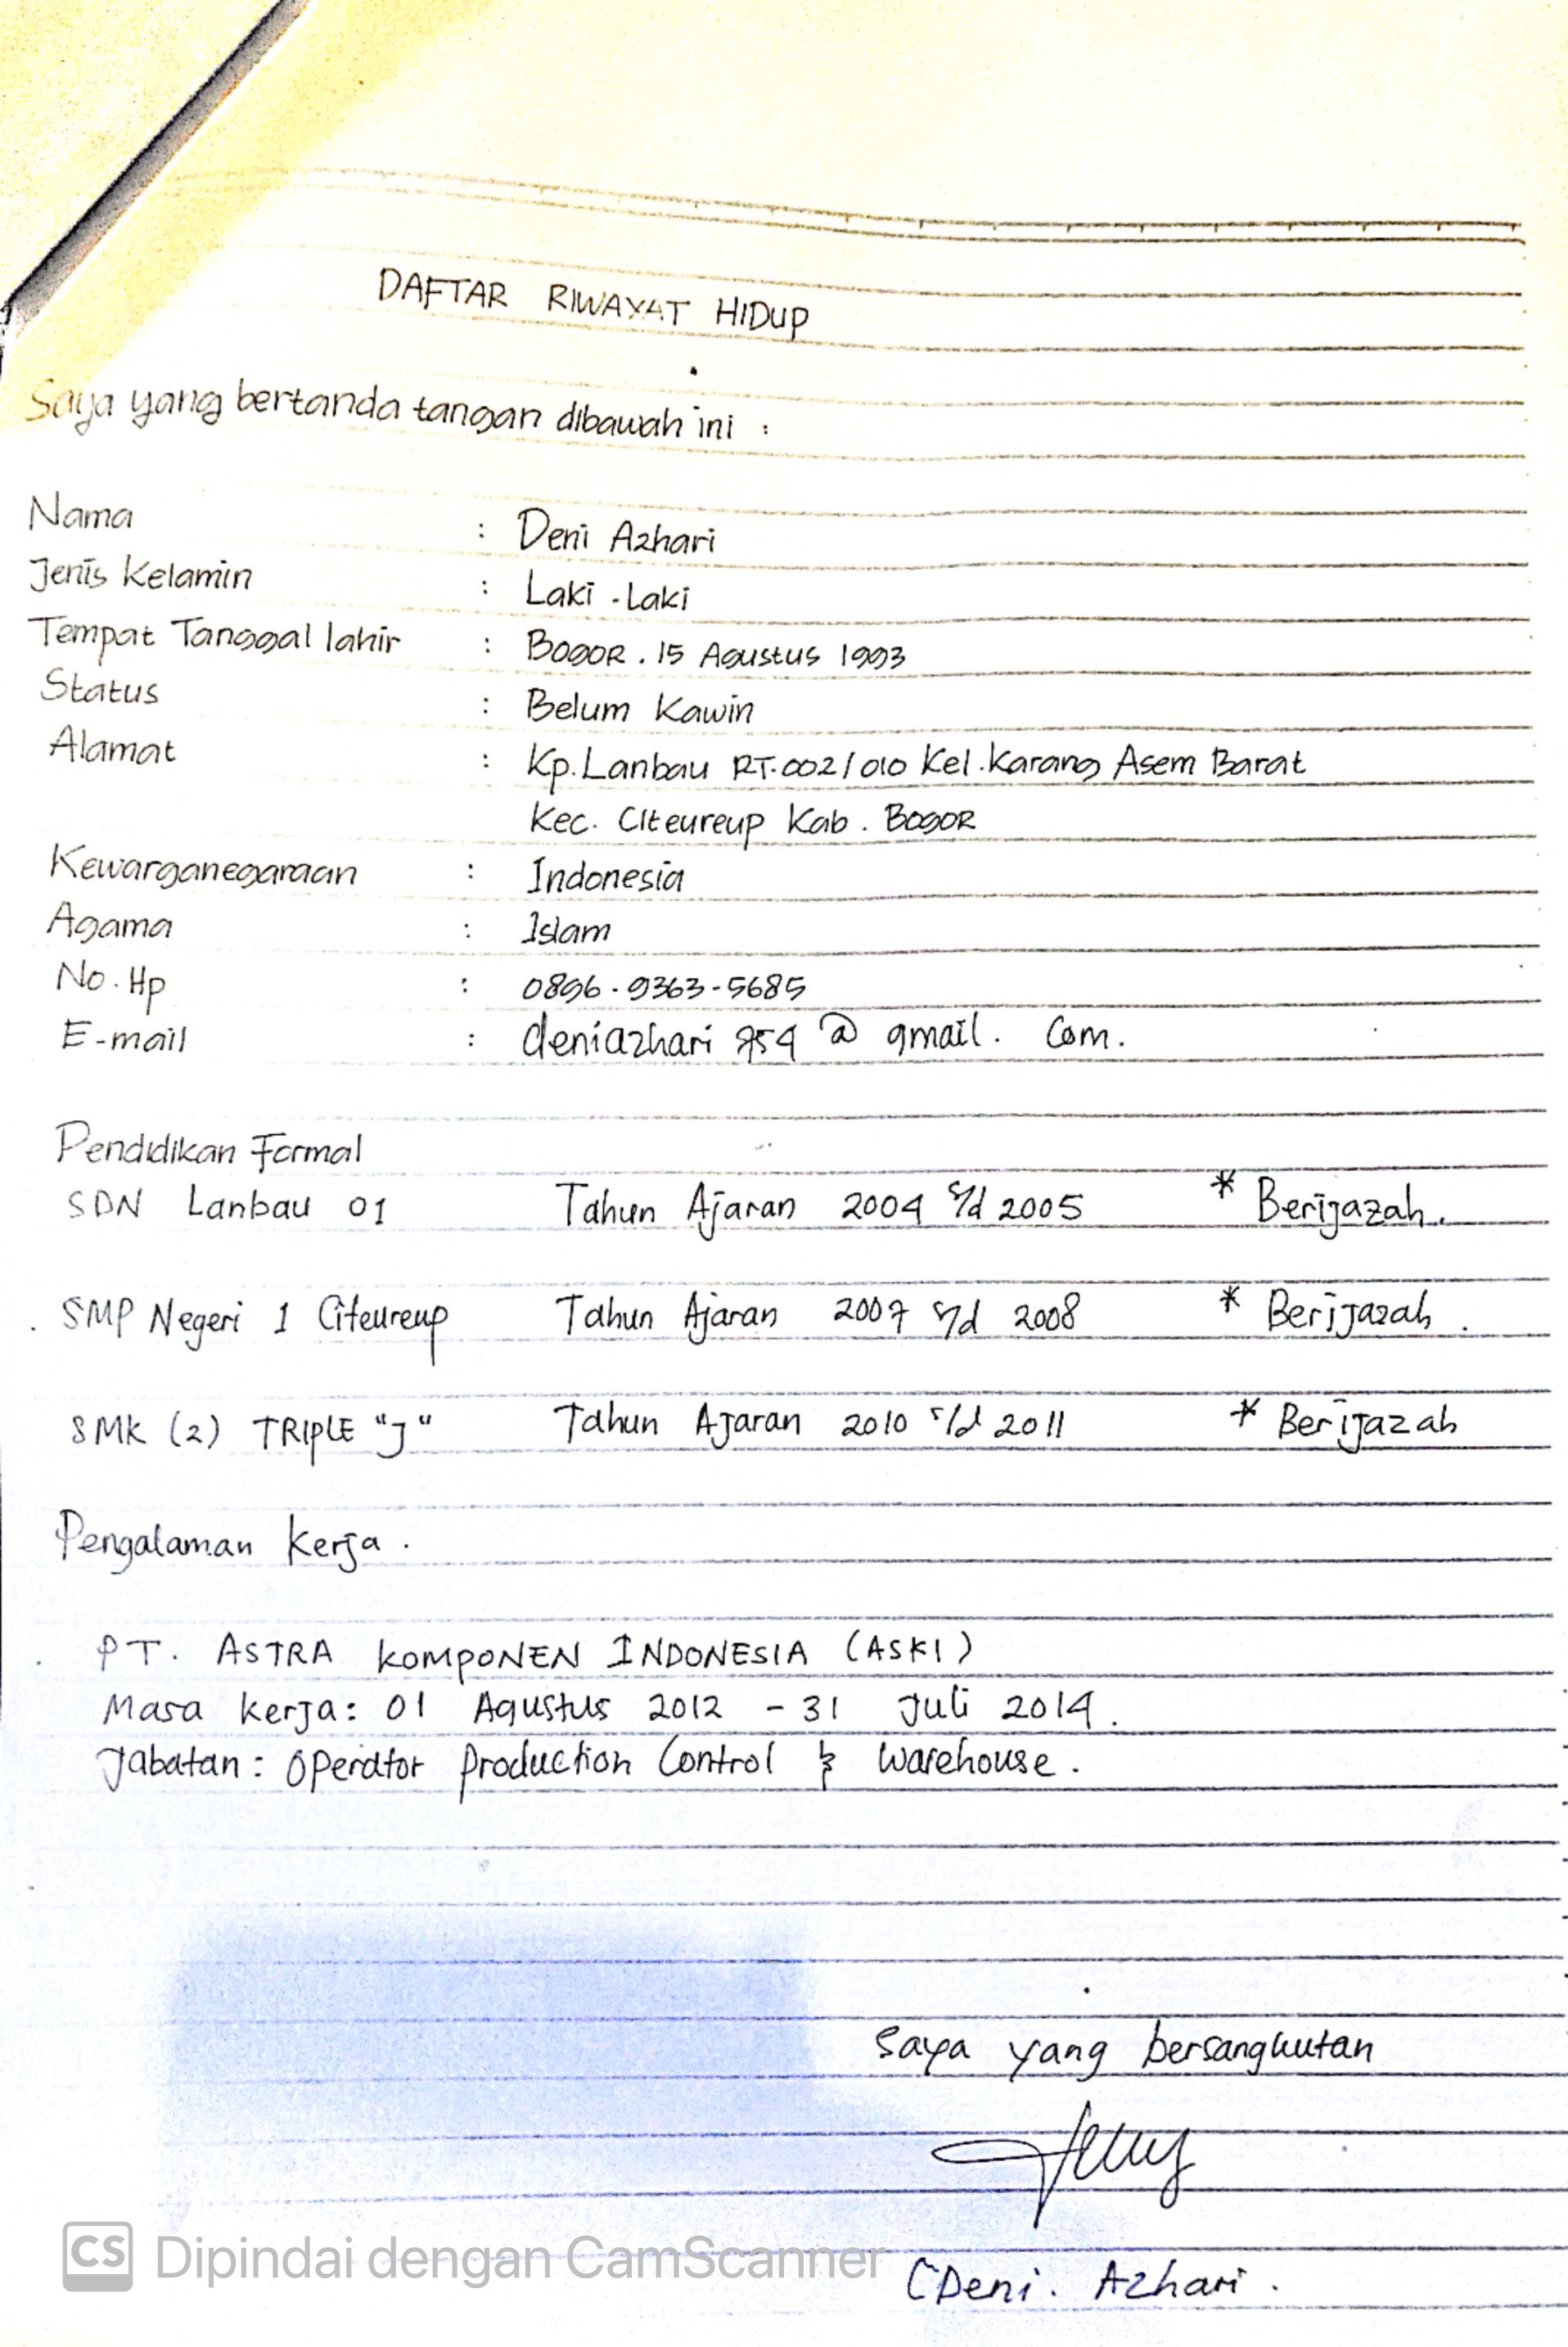 DAFTAR RIWAYAT HIDUP
Saya yang bertanda tangan dibawah ini :
Nama : Deni Azhari
Jenis Kelamin : Laki - Laki
Tempat Tanggal lahir : Bogor . 15 Agustus 1993
Status : Belum Kawin
Alamat : Kp. Lanbau RT.002/010 Kel. Karang Asem Barat
Kec. Citeureup Kab. Bogor
Kewarganegaraan : Indonesia
Agama : Islam
No. Hp : 0896-9363-5685
E-mail : deniazhari 954 @ gmail. Com.
Pendidikan Formal
SDN Lanbau 01 Tahun Ajaran 2004 s/d 2005 * Berijazah.
SMP Negeri 1 Citeureup Tahun Ajaran 2007 s/d 2008 * Berijazah.
SMK (2) TRIPLE "J" Tahun Ajaran 2010 s/d 2011 * Berijazah
Pengalaman Kerja .
PT. ASTRA KOMPONEN INDONESIA (ASKI)
Masa Kerja: 01 Agustus 2012 - 31 Juli 2014.
Jabatan: Operator Production Control & Warehouse.
Saya yang bersangkutan
CS Dipindai dengan CamScanner
(Deni. Azhari .